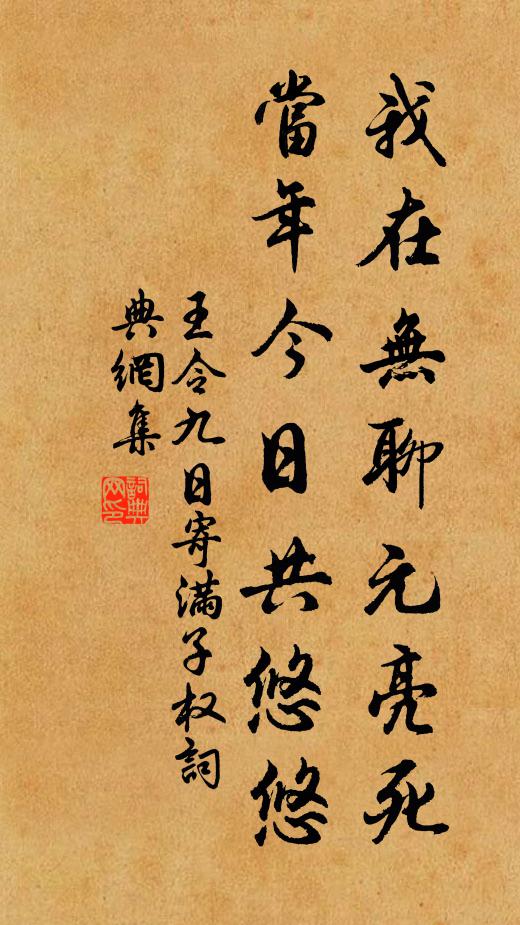 我在無聊元亮死
當年今日共悠悠
王令九日寄滿子权詞
典網集
詞典網印